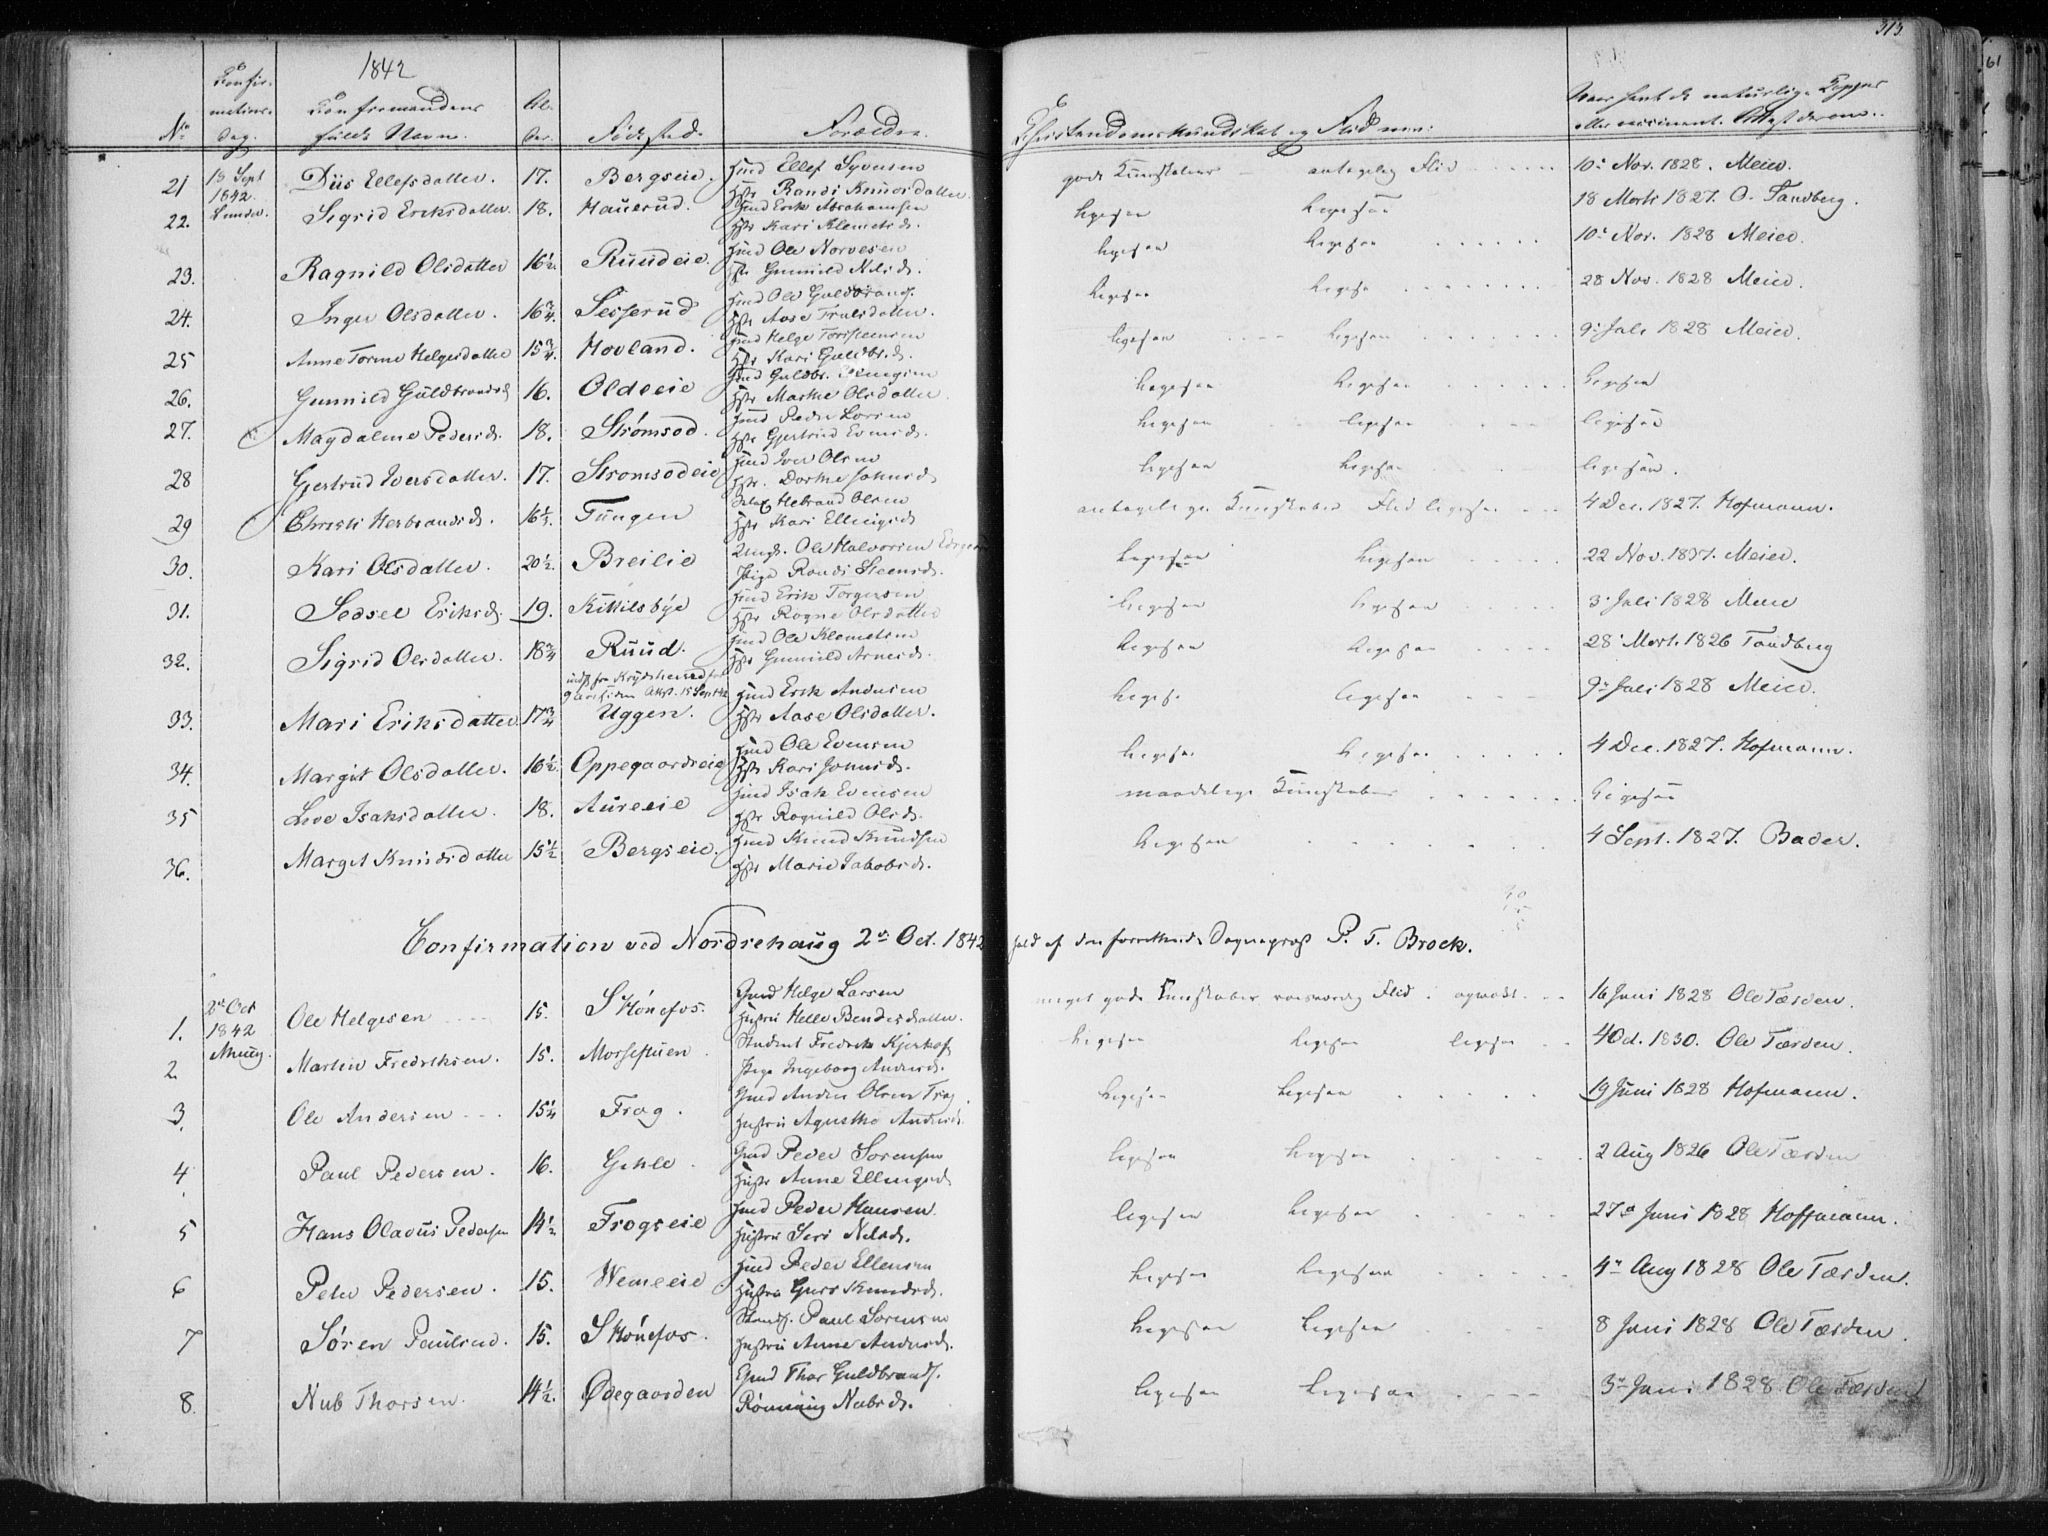 1842
313
61
No Confirmations Dag. Confirmandens fulde Navn. Alder. Födested. Forældre. Christendomskundskab og Flid
21 13 Sept 1842 Lunder. Diis Ellefsdatter. 17. Bergseie. Ellef Syversen
Randi Knudsdatter gode Kundskaber antagelig Flid 10 Nov. 1828. Meier.
22. Sigrid Eriksdatter. 18. Hauerud. Erik Abrahamsen
Kari Klemetsd. ligesaa ligesaa 18 Marts 1827. O. Tandberg.
23. Ragnild Olsdatter 16½. Ruudeie. Ole Norvesen
Gunnild Nilsd. ligesaa ligesaa 10 Nov. 1828 Meier.
24. Inger Olsdatter. 16¾. Sesserud Ole Guldbrands.
Aase Trulsdatter. ligesaa ligesaa 28 Nov. 1828 Meier.
25 Anne Torine Helgesdatter 15¾. Hovland. Helge Torstensen
Kari Guldbr.d. ligesaa ligesaa 9 Juli 1828 Meier.
26. Gunnild Guldbrandsd 16. Oldeeie Guldbr.
Marthe Olsdatter ligesaa ligesaa ligesaa
27. Magdalene Pedersd. 18. Strømsod. Peder Larsen
Gjertrud Evensd. ligesaa ligesaa ligesaa
28 Gjertrud Iversdatter. 17. Stromsodeie Iver Olsen
Dorthe Johnsd. ligesaa ligesaa ligesaa.
29 Christi Herbrandsd. 16½. Tüngen Hebrand Olsen
Kari Ellingsd antagelige Kundskaber Flid ligesaa 4 Dec. 1827. Hofmann.
30. Kari Olsdatter. 20½. Breilie Ungk. Ole Halvorsen
Pige Randi Steensd. ligesaa ligesaa 22 Nov. 1837. Meier.
31. Sedsel Eriksd. 19. Kittilsbye Erik Torgersen
Ragne Olsdatter ligesaa ligesaa 3 Juli 1828 Meier
32. Sigrid Olsdatter. 18¾ Ruud. Ole Klemetsen
Gunnild Arnesd. ligesaa ligesaa 28 Mart. 1826 Tandberg
indfl. fra Krydsherred
33. Mari Eriksdatter 17¾ Uggen. Erik Andersen
Aase Olsdatter. ligesaa ligesaa 9 Juli 1828 Meier.
34. Margit Olsdatter. 16½. Oppegaardseie Ole Evensen
Kari Johnsd. ligesaa ligesaa 4 Dec. 1827. Hofmann.
35 Live Isaksdatter. 18. Aureeie Isak Evensen
Ragnild Olsd. maadelige Kundskaber ligesaa
36. Marget Knudsdatter 15½ Bergseie. Knud Knudsen
Marie Jakobsd. ligesaa 4 Sept. 1827. Bader.
Confirmation ved Nordrehaug 2den Oct. 1842 hold af den forrettende Sognepræst P. T. Brock.
1. 2den Oct 1842 Ole Helgesen 15. Skönefos. Helge Larsen
Hustru Helle Bendesdatter. meget gode Kundskaber roesværdig Flid 16 Juni 1828 Ole Tærden.
2. Martin Fredriksen. 15. Morsestuen. Student Fredrik Kjerkof
Pige Ingeborg Andersd. ligesaa ligesaa ligesaa 4 Od. 1830. Ole Tærden.
3. Ole Andersen 15¼ Frog. Anders Olsen Frog.
Hustru Agnethe Andersd. ligesaa ligesaa 19 Juni 1828 Hofmann.
4 Paul Pedersen. 16. Gihle. Peder Sorensen
Anne Ellingsd. ligesaa ligesaa 2 Aug 1826 Ole Tærden
5 Hans Olavus Pedersen 14½ Frogseie Peder Hansen
Hustru Siri Nilsd. ligesaa ligesaa 27de Juni 1828 Hoffmann.
6 Peder Pedersen. 15. Wemeeie Peder Ellensen
Hustru Guro Knudsd. ligesaa ligesaa 4de Aug 1828 Ole Tærden.
7 Søren Paulsen. 15. Skönefos. Paul Sorensen
Hustru Anne Andersd. ligesaa ligesaa 8 Juni 1828 Ole Tærden.
8. Nub Thorsen. 14½. Ødegaarden Thor Guldbrands.
Rönnaug Nubsd. ligesaa ligesaa 3de Juni 1828 Ole Tærden